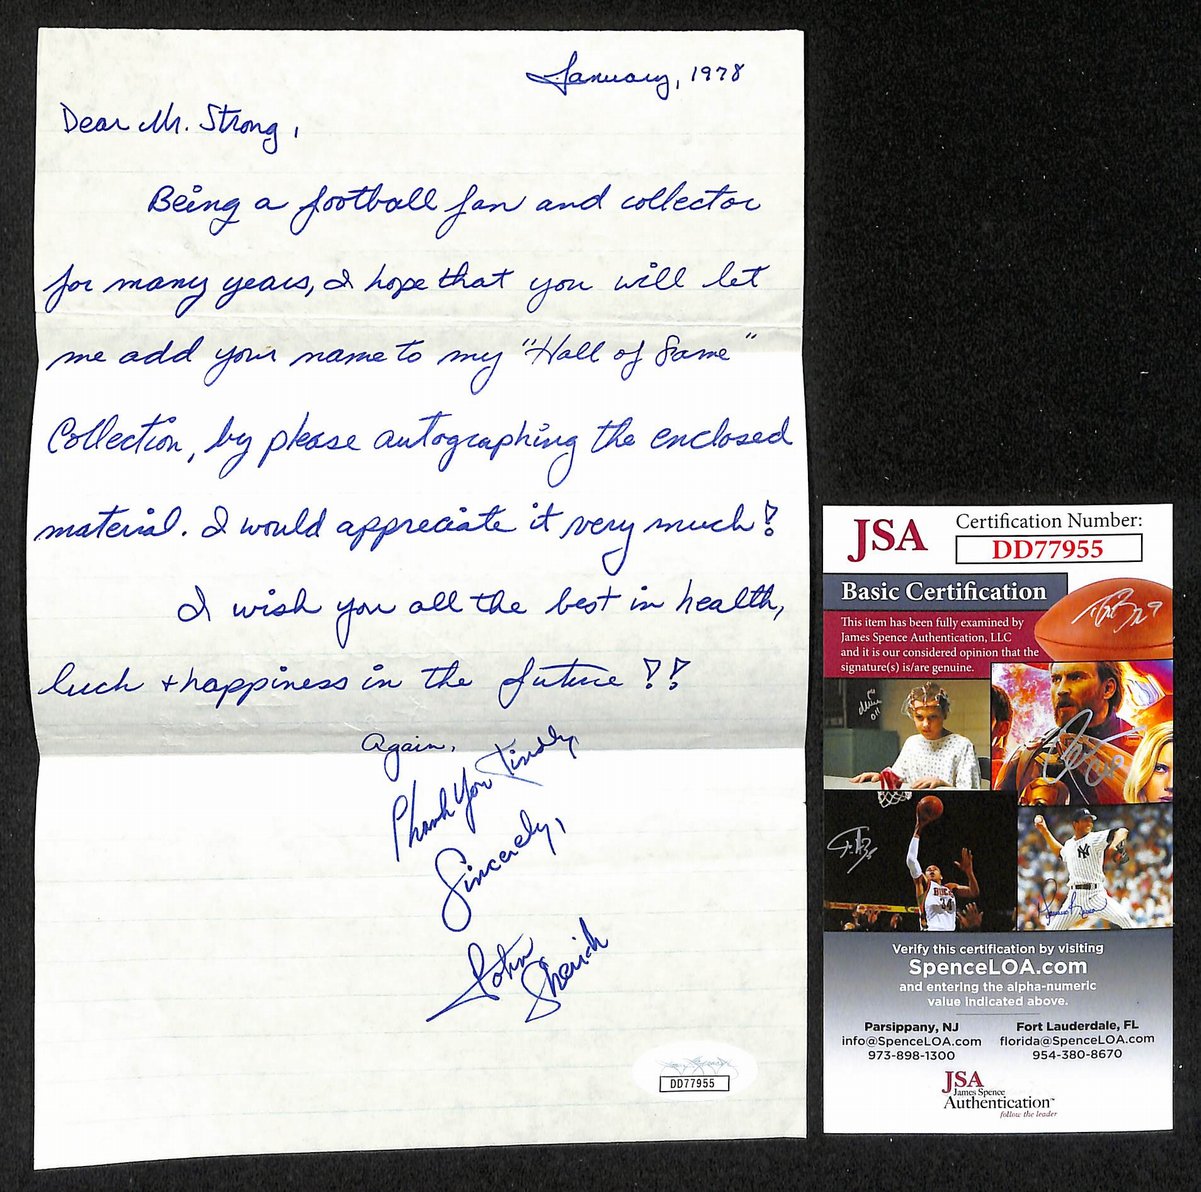 January, 1978
Dear Mr. Strong,
Being a football fan and collector
for many years, I hope that you will let
me add your name to my "Hall of Fame"
Collection, by please autographing the enclosed
material. I would appreciate it very much!
I wish you all the best in health,
luck + happiness in the future!!
Again,
Thank You Kindly,
Sincerely,
John
DD77955
JSA
Certification Number:
DD77955
Basic Certification
This item has been fully examined by
James Spence Authentication, LLC
and it is our considered opinion that the
signature(s) is/are genuine.
NY
BUCKS
34
Verify this certification by visiting
SpenceLOA.com
and entering the alpha-numeric
value indicated above.
Parsippany, NJ
info@SpenceLOA.com
973-898-1300
Fort Lauderdale, FL
florida@SpenceLOA.com
954-380-8670
JSA
James Spence
Authentication™
follow the leader